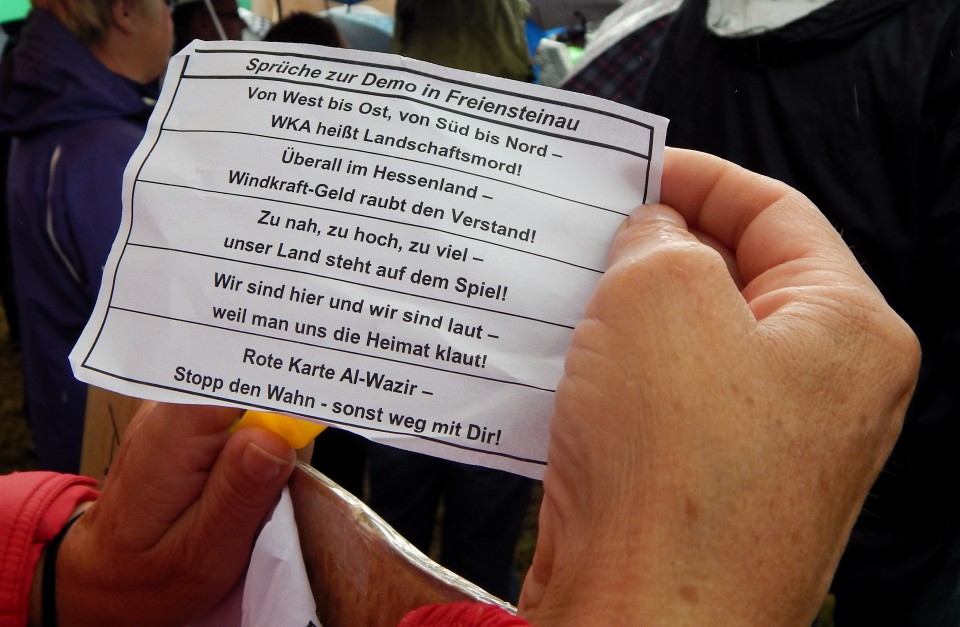 Sprüche zur Demo in Freiensteinau
Von West bis Ost, von Süd bis Nord –
WKA heißt Landschaftsmord!
Überall im Hessenland –
Windkraft-Geld raubt den Verstand!
Zu nah, zu hoch, zu viel –
unser Land steht auf dem Spiel!
Wir sind hier und wir sind laut –
weil man uns die Heimat klaut!
Rote Karte Al-Wazir –
Stopp den Wahn - sonst weg mit Dir!